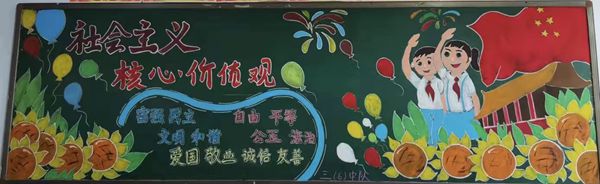 社会主义
核心价值观
富强民主 自由 平等
文明 和谐 公正 法治
爱国 敬业 诚信 友善
三(6)中队